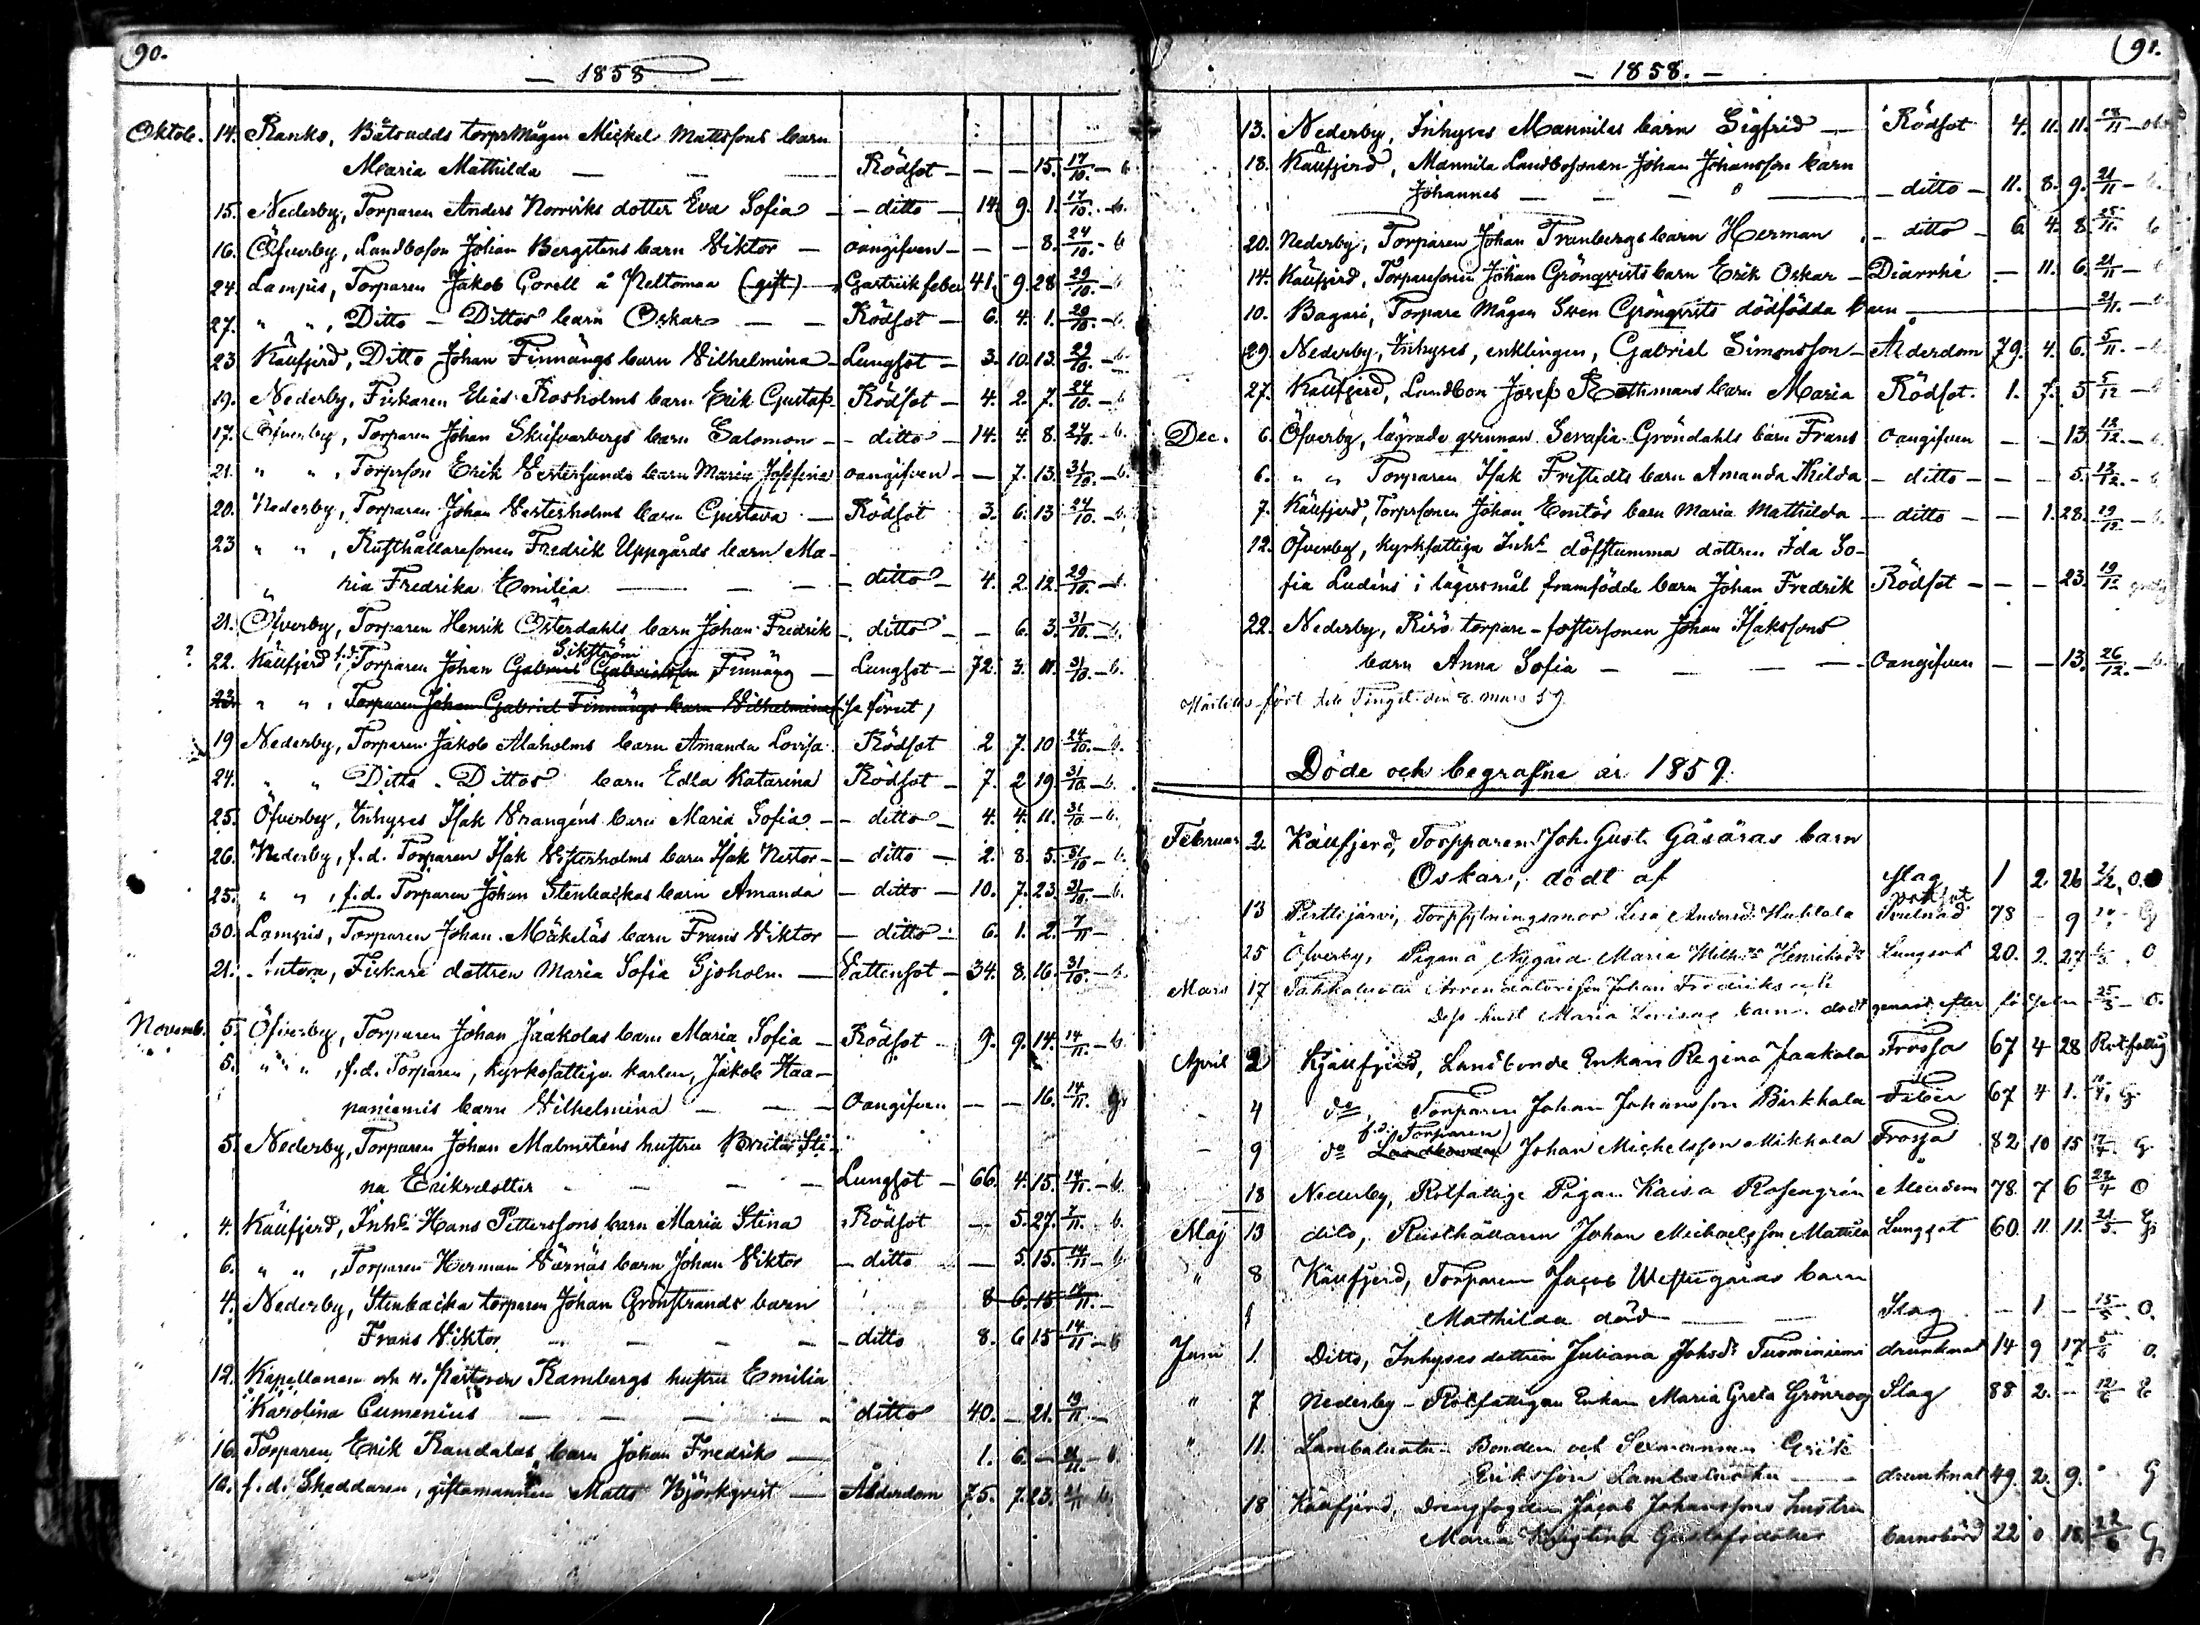 90.
— 1858 —
Oktob. 14. Ranko, Båtsudds torpsmågen Mickel Mattssons barn
Maria Mathilda — — — Rödsot — — — 15. 17/10. — b.
15. Nederby, Torparen Anders Norrviks dotter Eva Sofia — ditto — 14. 9. 1. 17/10. — b.
16. Öfverby, Landboson Johan Bergstens barn Viktor — oangifven — — — 8. 24/10. — b
24. Lampis, Torparen Jakob Gorell å Peltomaa (gift) — Gastrisk feber 41. 9. 28 29/10. — b
27. " " , Ditto — Dittos barn Oskar — — Rödsot — 6. 4. 1. 29/10. — b.
23 Käufjerd, Ditto Johan Finnängs barn Vilhelmina — Lungsot — 3. 10. 13. 29/10. — b.
19. Nederby, Fiskaren Elias Rosholms barn Erik Gustaf — Rödsot — 4. 2. 7. 24/10. — b.
17. Öfverby, Torparen Johan Skrifvarbergs barn Salomon — ditto — 14. 4. 8. 24/10. — b.
21. " " , Torpsson Erik Vestersunds barn Maria Josefina oangifven — — 7. 13. 31/10. — b.
20. Nederby, Torparen Johan Vesterholms barn Gustava — Rödsot 3. 6. 13 24/10. — b.
23 " " , Rusthållaresonen Fredrik Uppgårds barn Ma-
" ria Fredrika Emilia — — — ditto — 4. 2. 12. 29/10. — b.
21. Öfverby, Torparen Henrik Österdahls barn Johan Fredrik — ditto — — 6. 3. 31/10. — b.
Sikström
? 22. Käufjerd, f.d. Torparen Johan Gabriel Gabrielsson Finnäng — Lungsot — 72. 3. 11. 31/10. — b.
23. " " , Torparen Johan Gabriel Finnängs barn Vilhelmina (se förut)
19 Nederby, Torparen Jakob Alaholms barn Amanda Lovisa. Rödsot 2 7. 10 24/10. — b.
24. " " Ditto — Dittos barn Edla Katarina Rödsot — 7. 2 19. 31/10. — b.
25. Öfverby, Inhyses Isak Vrangéns barn Maria Sofia — ditto — 4. 4. 11. 31/10 — b.
26. Nederby, f.d. Torparen Isak Vesterholms barn Isak Nestor — ditto — 2. 8. 5. 31/10 — b.
25. " " , f.d. Torparen Johan Stenbackas barn Amanda — ditto — 10. 7. 23. 31/10. — b.
30. Lampis, Torparen Johan Mäkeläs barn Frans Viktor — ditto — 6. 1. 2. 7/11 —
21. Fiskare dottren Maria Sofia Sjöholm — Vattensot — 34. 8. 16. 31/10. — b.
Novemb. 5. Öfverby, Torparen Johan Jaakolas barn Maria Sofia — Rödsot — 9. 9. 14. 14/11. — b.
5. " " , f.d. Torparen, kyrkofattige karlen, Jakob Haa-
paniemis barn Vilhelmina — — — Oangifven — — 16. 14/11.
5. Nederby, Torparen Johan Malmsténs hustru Brita Sti-
na Eriksdotter — — — Lungsot — 66. 4. 15. 14/11. — b.
4. Käufjerd, Inhs Hans Petterssons barn Maria Stina Rödsot — 5. 27. 7/11. b.
6. " " , Torparen Herman Värnäs barn Johan Viktor — ditto — 5 15. 14/11 — b
4. Nederby, Stenbacka torparen Johan Grönstrands barn 8 6. 15 14/11. —
Frans Viktor — — — ditto 8. 6 15 14/11 — b
12. Kapellanen och v. Pastoren Rambergs hustru Emilia
Karolina Cumenius — — — ditto 40. — 21. 19/11 —
16. Torparen Erik Randalas barn Johan Fredrik — 1. 6. — 21/11. — b
f.d. Skeddaren, giftamannen Matts Björkqvist — Ålderdom 75. 7. 23. 21/11 b.
91.
— 1858. —
13. Nederby, Inhyses Mannilas barn Sigfrid — Rödsot 4. 11. 11. 28/11 —
18. Käufjerd, Mannila Landbosonen Johan Johansson barn
Johannes — — — ditto — 11. 8. 9. 21/11 — b.
20. Nederby, Torparen Johan Tranbergs barn Herman — ditto — 6 4. 8. 25/11. b
14. Käufjerd, Torparesonen Johan Grönqvists barn Erik Oskar — Diarrhé — 11. 6. 21/11 — b
10. Bagari, Torpare Mågen Sven Grönqvists dödfödda barn — 21/11. — b
29. Nederby, Inhyses, enklingen, Gabriel Simonsson — Ålderdom 79. 4. 6. 5/11. — b
27. Käufjerd, Landbon Josef Rothmans barn Maria Rödsot. 1. 7. 5 5/12 — b
Dec. 6. Öfverby, lägrade qvinnan Serafia Gröndahls barn Frans Oangifven — — 13. 12/12. — b.
6. " " Torparen Isak Fristedts barn Amanda Hilda — ditto — — — 5. 12/12. — b
7. Käufjerd, Torpssonen Johan Enntös barn Maria Mathilda — ditto — — 1. 28. 19/12. — b.
12. Öfverby, kyrkfattiga Inhs döfstumma dottren Ida So-
fia Ludéns i lägersmål framfödde barn Johan Fredrik Rödsot — — — 23. 19/12
22. Nederby, Risö torpare-fostersonen Johan Isakssons
barn Anna Sofia — — — Oangifven — — 13. 26/12. — b.
Hitintills fört till Tinget den 8. mars 59
Döde och begrafne år 1859.
Februar 2. Käufjerd, Torpparen Joh. Gust. Gåsäras barn
Oskar, dödt af slag 1 2. 26 2/2. O.
13 Perttijärvi, Torpsytningsmor Lisa Andersd. Huhtala 78 — 9 G
25 Öfverby, Pigan å Nygård Maria Henriksdr Lungsot 20. 2. 27 O
Mars 17 Johan Fredriksson
Dess hust Maria Lovisas barn dödt genast efter födseln 25/3 — O.
April 2 Kjäufjerd, Landbonde Enkan Regina Jaakola Frossa 67 4 28 Rotfattig
- 4 do, Torparen Johan Johansson Birkkala Feber 67 4 1. 10/4. G
f.d. Torparen
- 9 do Landbonden Johan Michelsson Mikkola Frossa 82 10 15 17/4. G
18 Nederby, Rotfattige Pigan Kaisa Rosengrén Ålderdom 78. 7 6 22/4 O
Maj 13 dito, Rusthållaren Johan Michaelsson Mattila Lungsot 60. 11. 11. 21/5. G
" 8 Käufjerd, Torparen Jacob Westergåras barn
Mathilda död — Slag — 1. — 15/5. O.
Juni 1. Ditto, Inhyses dottren Juliana Johsdr Tuominiemi drunknat 14 9 17 5/6 O.
" 7 Nederby — Rotfattigen Enkan Maria Greta Grönroos Slag 88 2. — 12/6 G
" 11. Lambaluoto Bonden och Sexmannen Erik
Eriksson Lambaluoto — drunknat 49. 2. 9. G
18 Käufjerd, Drengfogden Jacob Johanssons hustru
Maria Kristina Gustafsdotter barnsbörd 22 0 18 22/6 G